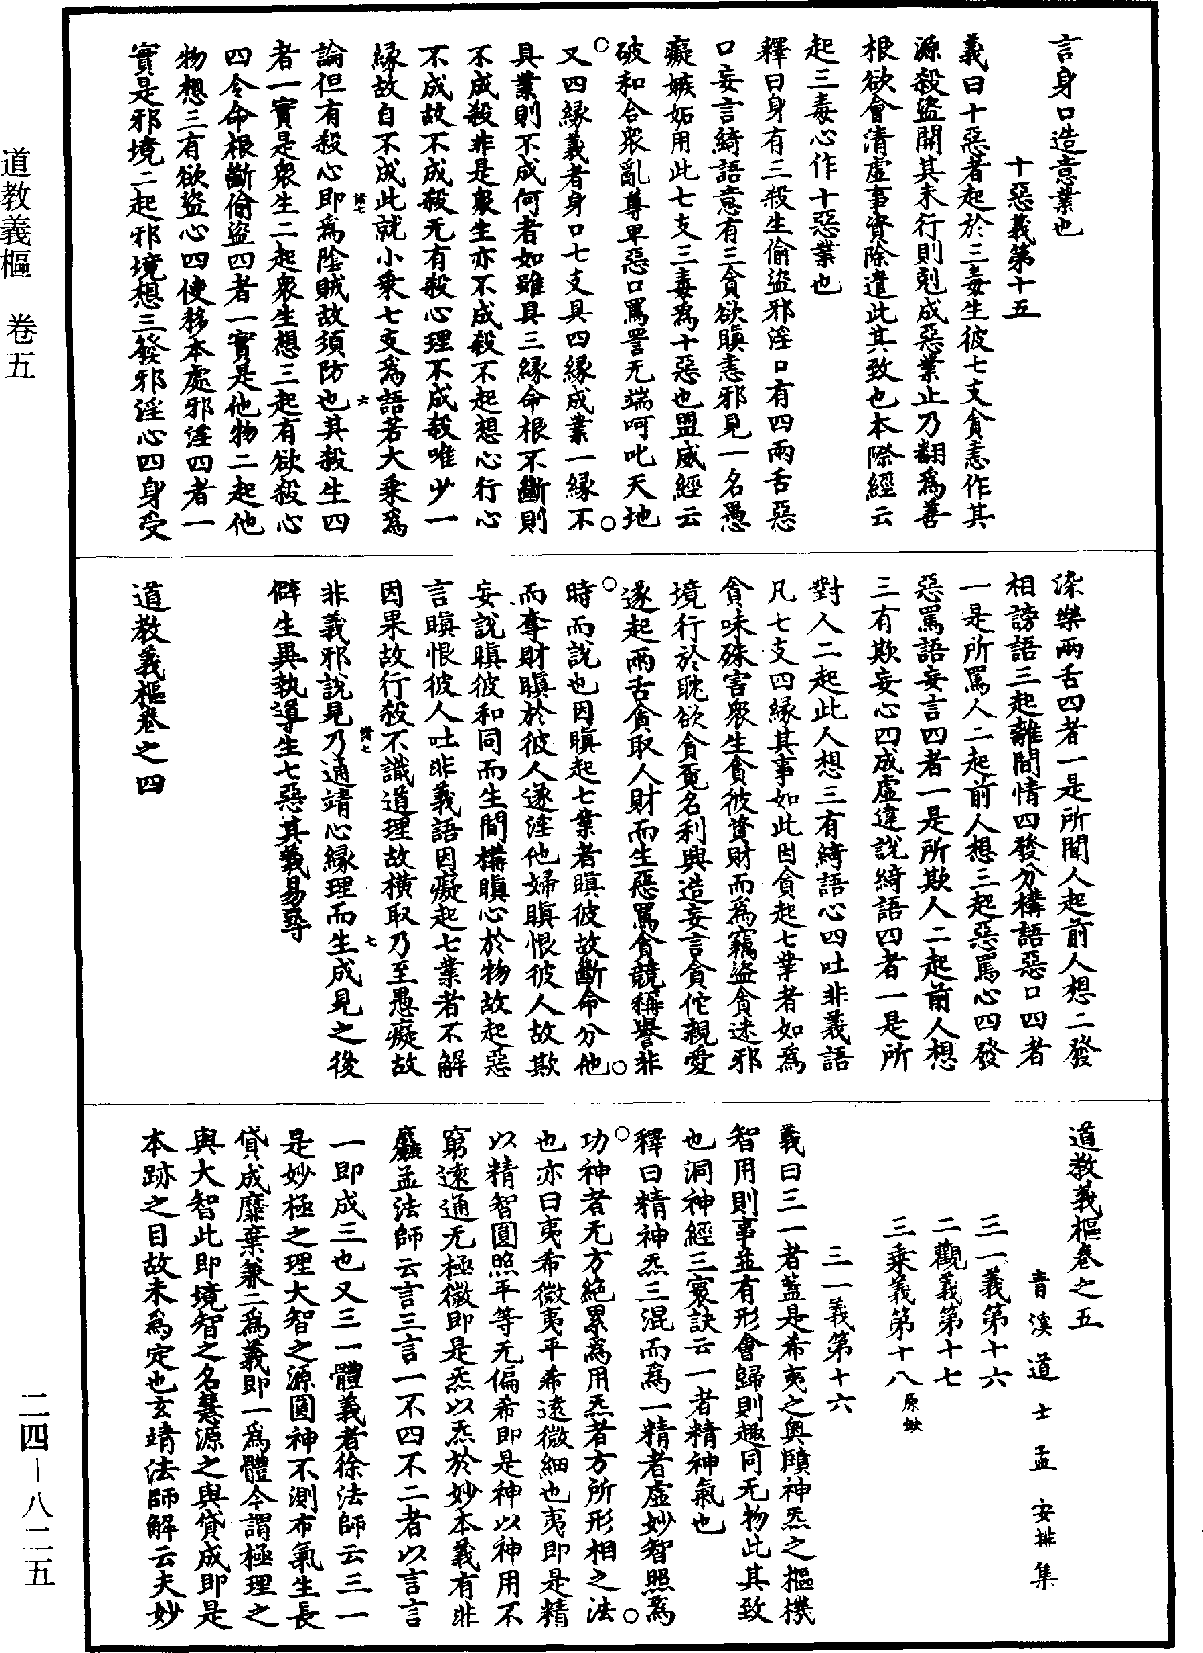 道教義樞　卷五
二四—八二五
言身口造意業也
十惡義第十五
義曰十惡者起於三毒生彼七支貪恚作其
源殺盜開其末行則剋成惡業止乃翻為善
根欲會清虛事資除遣此其致也本際經云
起三毒心作十惡業也
釋曰身有三殺生偷盜邪淫口有四兩舌惡
口妄言綺語意有三貪欲瞋恚邪見一名愚
癡嫉妬用此七支三毒為十惡也盟威經云
破和合眾亂尊卑惡口罵詈无端呵叱天地
又四緣義者身口七支具四緣成業一緣不
具業則不成何者如雖具三緣命根不斷則
不成殺非是眾生亦不成殺不起想心行心
不成故不成殺无有殺心理不成殺唯少一
緣故自不成此就小乘七支為語若大乘為
論但有殺心即為陰賊故須防也其殺生四
者一實是眾生二起眾生想三起有欲殺心
四令命根斷偷盜四者一實是他物二起他
物想三有欲盜心四使移本處邪淫四者一
實是邪境二起邪境想三發邪淫心四身受
染樂兩舌四者一是所聞人起前人想二發
相謗語三起離間情四發分構語惡口四者
一是所罵人二起前人想三起惡罵心四發
惡罵語妄言四者一是所欺人二起前人想
三有欺妄心四成虛違說綺語四者一是所
對人二起此人想三有綺語心四吐非義語
凡七支四緣其事如此因貪起七業者如為
貪味殊害眾生貪彼資財而為竊盜貪迷邪
境行於耽欲貪覓名利興造妄言貪佗親愛
遂起兩舌貪取人財而生惡罵貪競稱譽非
時而說也因瞋起七業者瞋彼故斷命分他
而奪財瞋於彼人遂淫他婦瞋恨彼人故欺
妄說瞋彼和同而生間構瞋心於物故起惡
言瞋恨彼人吐非義語因癡起七業者不解
因果故行殺不識道理故橫取乃至愚癡故
非義邪說見乃通靖心緣理而生成見之後
僻生異執導生七惡其義易尋
道教義樞卷之四
道教義樞卷之五
青溪道士孟安排集
三一義第十六
二觀義第十七
三乘義第十八原缺
三一義第十六
義曰三一者蓋是希夷之奧賾神炁之樞機
智用則事並有形會歸則趣同无物此其致
也洞神經三寰訣云一者精神氣也
釋曰精神炁三混而為一精者虛妙智照為
功神者无方絕累為用炁者方所形相之法
也亦曰夷希微夷平希遠微細也夷即是精
以精智圓照平等无偏希即是神以神用不
窮遠通无極微即是炁以炁於妙本義有非
麤孟法師云言三言一不四不二者以言言
一即成三也又三一體義者徐法師云三一
是妙極之理大智之源圓神不測布氣生長
貸成靡棄兼二為義即一為體今謂極理之
與大智此即境智之名慧源之與貸成即是
本跡之目故未為定也玄靖法師解云夫妙